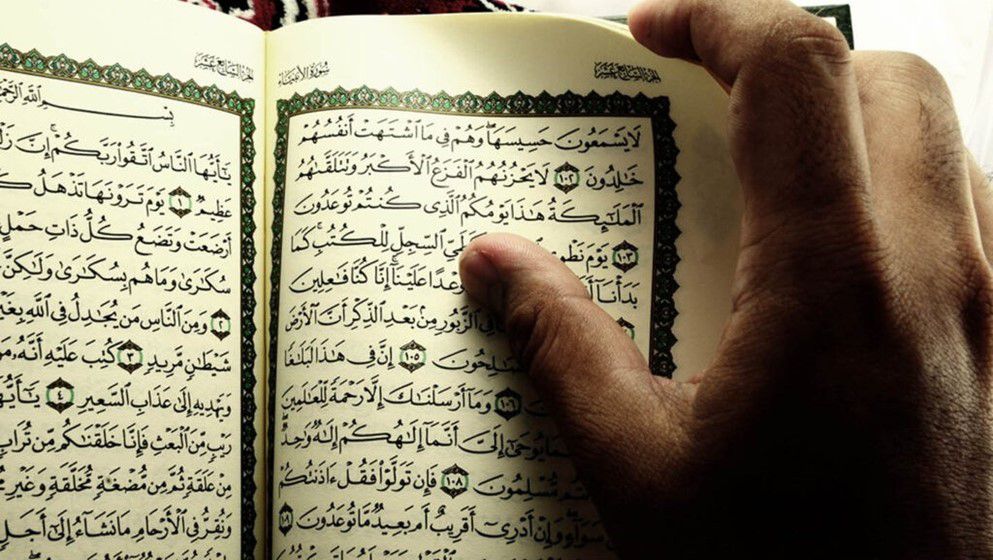 الجزء السابع عشر
سورة الأنبياء
لَا يَسْمَعُونَ حَسِيسَهَا ۖ وَهُمْ فِي مَا ٱشْتَهَتْ أَنفُسُهُمْ
خَٰلِدُونَ ١٠٢ لَا يَحْزُنُهُمُ ٱلْفَزَعُ ٱلْأَكْبَرُ وَتَتَلَقَّىٰهُمُ
ٱلْمَلَٰٓئِكَةُ هَٰذَا يَوْمُكُمُ ٱلَّذِي كُنتُمْ تُوعَدُونَ
١٠٣ يَوْمَ نَطْوِي ٱلسِّجِلِّ لِلْكُتُبِ ۚ كَمَا
بَدَأْنَا وَعْدًا عَلَيْنَا ۚ إِنَّا كُنَّا فَٰعِلِينَ
فِي ٱلزَّبُورِ مِنۢ بَعْدِ ٱلذِّكْرِ أَنَّ ٱلْأَرْضَ
ٱلصَّٰلِحُونَ ١٠٥ إِنَّ فِي هَٰذَا لَبَلَٰغًا
١٠٦ وَمَآ أَرْسَلْنَٰكَ إِلَّا رَحْمَةً لِّلْعَٰلَمِينَ
يُوحَىٰٓ إِلَيَّ أَنَّمَآ إِلَٰهُكُمْ إِلَٰهٌ وَٰحِدٌ ۖ
مُّسْلِمُونَ ١٠٨ فَإِن تَوَلَّوْا۟ فَقُلْ ءَاذَنتُكُمْ
سَوَآءٍ ۖ وَإِنْ أَدْرِيٓ أَقَرِيبٌ أَم بَعِيدٌ مَّا تُوعَدُونَ ١٠٩
الجزء السابع عشر
بِسْمِ ٱللَّهِ
يَٰٓأَيُّهَا ٱلنَّاسُ ٱتَّقُوا۟ رَبَّكُمْ ۚ إِنَّ
عَظِيمٌ ١ يَوْمَ تَرَوْنَهَا تَذْهَلُ
أَرْضَعَتْ وَتَضَعُ كُلُّ ذَاتِ حَمْلٍ
سُكَٰرَىٰ وَمَا هُم بِسُكَٰرَىٰ وَلَٰكِنَّ
٢ وَمِنَ ٱلنَّاسِ مَن يُجَٰدِلُ فِي ٱللَّهِ بِغَيْرِ
شَيْطَٰنٍ مَّرِيدٍ ٣ كُتِبَ عَلَيْهِ أَنَّهُۥ
وَيَهْدِيهِ إِلَىٰ عَذَابِ ٱلسَّعِيرِ ٤ يَٰٓأَيُّهَا
رَيْبٍ مِّنَ ٱلْبَعْثِ فَإِنَّا خَلَقْنَٰكُم مِّن تُرَابٍ
مِنْ عَلَقَةٍ ثُمَّ مِن مُّضْغَةٍ مُّخَلَّقَةٍ وَغَيْرِ
وَنُقِرُّ فِي ٱلْأَرْحَامِ مَا نَشَآءُ إِلَىٰٓ أَجَلٍ